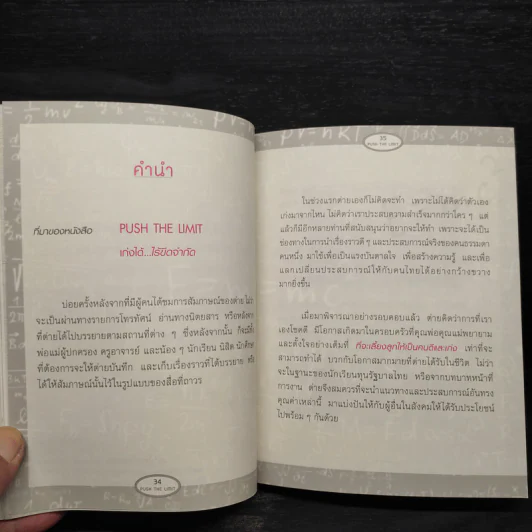 คำนำ
ที่มาของหนังสือ PUSH THE LIMIT
เก่งได้...ไร้ขีดจำกัด
บ่อยครั้งหลังจากที่มีผู้คนได้ชมการสัมภาษณ์ของต่าย ไม่ว่า
จะเป็นผ่านทางรายการโทรทัศน์ อ่านทางนิตยสาร หรือหลังจาก
ที่ต่ายได้ไปบรรยายตามสถานที่ต่าง ๆ ซึ่งหลังจากนั้น ก็จะมี
พ่อแม่ผู้ปกครอง ครูอาจารย์ และน้อง ๆ นักเรียน นิสิต นักศึกษา
ที่ต้องการจะให้ต่ายบันทึก และเก็บเรื่องราวที่ได้บรรยาย
ได้ให้สัมภาษณ์นั้นไว้ในรูปแบบของสื่อที่ถาวร
34
PUSH THE LIMIT
35
PUSH THE LIMIT
ในช่วงแรกต่ายเองก็ไม่คิดจะทำ เพราะไม่ได้คิดว่าตัวเอง
เก่งมาจากไหน ไม่คิดว่าเราประสบความสำเร็จมากกว่าใคร ๆ แต่
แล้วก็มีอีกหลายท่านที่สนับสนุนว่าอยากจะให้ทำ เพราะจะได้เป็น
ช่องทางในการนำเรื่องราวดี ๆ และประสบการณ์จริงของคนธรรมดา
คนหนึ่ง มาใช้เพื่อเป็นแรงบันดาลใจ เพื่อสร้างความรู้ และเพื่อ
แลกเปลี่ยนประสบการณ์ให้กับคนไทยได้อย่างกว้างขวาง
มากยิ่งขึ้น
เมื่อมาพิจารณาอย่างรอบคอบแล้ว ต่ายคิดว่าการที่เรา
เองโชคดี มีโอกาสเกิดมาในครอบครัวที่คุณพ่อคุณแม่พยายาม
และตั้งใจอย่างเต็มที่ ที่จะเลี้ยงลูกให้เป็นคนดีและเก่ง เท่าที่จะ
สามารถทำได้ บวกกับโอกาสมากมายที่ต่ายได้รับในชีวิต ไม่ว่า
จะในฐานะของนักเรียนทุนรัฐบาลไทย หรือจากบทบาทหน้าที่
การงาน ต่ายจึงสมควรที่จะนำแนวทางและประสบการณ์อันทรง
คุณค่าเหล่านี้ มาแบ่งปันให้กับผู้อื่นในสังคมให้ได้รับประโยชน์
ไปพร้อม ๆ กันด้วย